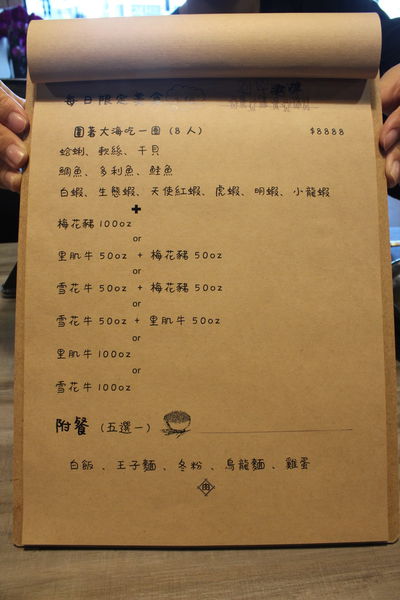 每日限定美食
圍著大海吃一圈 (8人) $8888
蛤蜊、軟絲、干貝
鯛魚、多利魚、鮭魚
白蝦、生態蝦、天使紅蝦、虎蝦、明蝦、小龍蝦
+
梅花豬 100oz
or
里肌牛 50oz + 梅花豬 50oz
or
雪花牛 50oz + 梅花豬 50oz
or
雪花牛 50oz + 里肌牛 50oz
or
里肌牛 100oz
or
雪花牛 100oz
附餐 (五選一)
白飯、王子麵、冬粉、烏龍麵、雞蛋